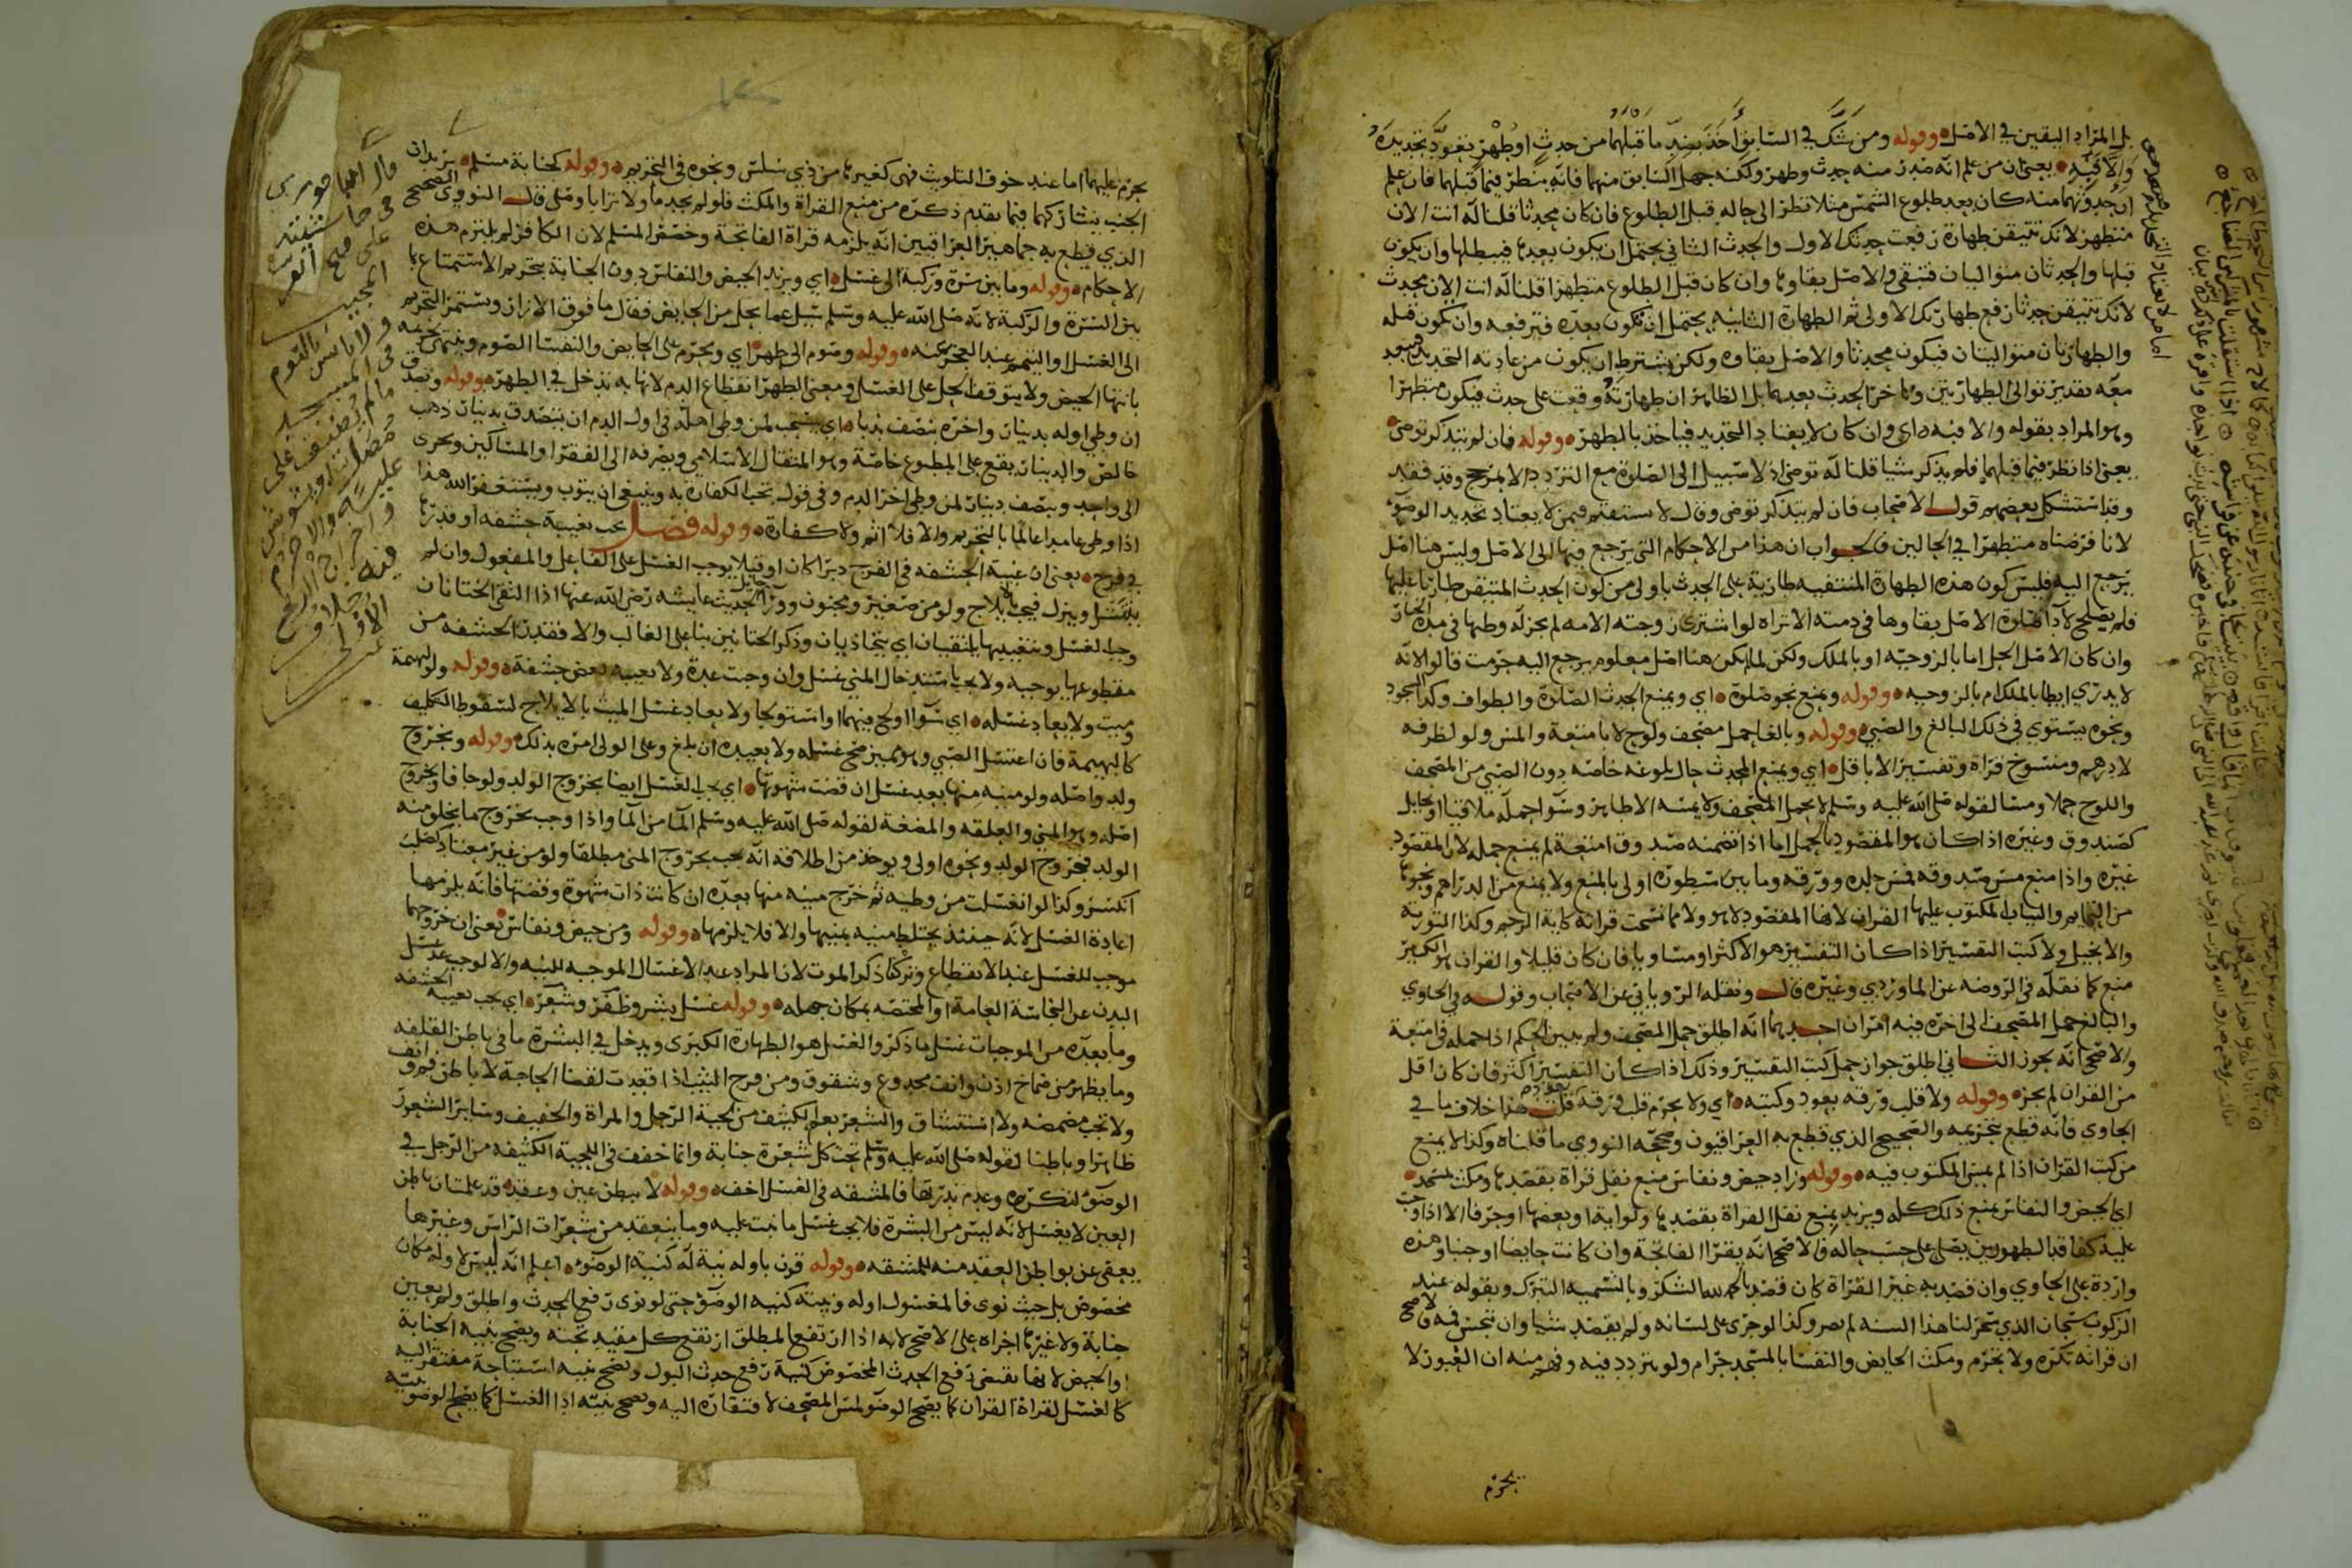 بل المراد اليقين في الاصل وقوله ومن شك في السابق اخذ بضد ما قبلهما من حدث او طهر بتعود تجديده
والا فبه يعني ان من علم انه صدر منه حدث وطهر ولكنه جهل السابق منهما فانه ينظر فيما قبلهما فان علم
ان حدوثهما منه كان بعد طلوع الشمس مثلا نظر الى حاله قبل الطلوع فان كان محدثا قلنا له انت الان
متطهر لانك تتيقن طهارة رفعت حدثك الاول والحدث الثاني يحتمل ان يكون بعدها فيبطلها وان يكون
قبلها والحدثان متواليان فتبقى والاصل بقاوها وان كان قبل الطلوع متطهرا قلنا له انت الان محدث
لانك تتيقن حدثا رفع طهارتك الاولى ثم الطهارة الثانيه يحتمل ان تكون بعده فترفعه وان تكون قبله
والطهارتان متواليتان فيكون محدثا والاصل بقاوه ولكن يشترط ان يكون من عادته التجديد
معه تقدير توالي الطهارتين والا اخر الحدث بعدهما بل الظاهر ان طهارته وقعت على حدث فيكون متطهرا
وهو المراد بقوله والا فبه اي وان كان لا يعتاد التجديد فياخذ بالطهر وقوله فان لم يتذكر توضى
يعني اذا نظر فيما قبلهما فلم يذكر شيا قلنا له توضى اذ لا سبيل الى الصلوة مع التردد الا بمرجح وقد فقد
وقد استشكل بعضهم قول الاصحاب فان لم يتذكر توضى وقال لا يستقيم فيمن لا يعتاد تجديد الوضوء
لانا فرضناه متطهرا في الحالين فالجواب ان هذا من الاحكام التي يرجع فيها الى الاصل وليس هنا اصل
يرجع اليه فليس كون هذه الطهارة المتيقنه طارية على الحدث باولى من كون الحدث المتيقن طاريا عليها
فلم يصلح لاداء الصلوة الاصل بقاوها في ذمته الا تراه لو اشترى زوجته الامه لم يجز له وطيها في مدة الخيار
وان كان الاصل الحل اما بالزوجيه او بالملك ولكن لما لم يكن هنا اصل معلوم يرجع اليه حرمت قالوا لانه
لا يدري ايطا بالملك ام بالزوجيه وقوله ويمنع نحو صلوة اي ويمنع الحدث الصلوة والطواف وكذا السجود
ونحوه يستوي في ذلك البالغ والصبي وقوله وبالغا حمل مصحف ولوح لا بامتعة والمس ولو لظرفه
لا درهم ومنسوخ قراة وتفسير الا باقل اي ويمنع المحدث حال بلوغه خاصه دون الصبي من المصحف
واللوح حملا ومسا لقوله صلى الله عليه وسلم لا يحمل المصحف ولا يمسه الا طاهر وسوا حمله ملاقيا او بحايل
كصندوق وغيره اذا كان هو المقصود بالحمل اما اذا تضمنه صندوق امتعة لم يمنع حمله لان المقصود
غيره واذا منع مس صندوقه فمس جلده وورقه وما بين سطوره اولى بالمنع ولا يمنع من الدراهم ونحوها
من التمايم والثياب المكتوب عليها القران لانها المقصود لا هو ولا مما نسخت قراته كاية الرجم وكذا التوريه
والانجيل ولا كتب التفسير اذا كان التفسير هو الاكثر او مساويا فان كان قليلا والقران هو الكثير
منع كما نقله في الروضه عن الماوردي وغيره قال ونقله الروياني عن الاصحاب وقوله في الحاوي
والبالغ حمل المصحف الى اخره فيه امران احدهما انه اطلق حمل المصحف ولم يبين الحكم اذا حمله في امتعة
والاصح انه يجوز الثاني اطلق جواز حمل كتب التفسير وذلك اذا كان التفسير اكثر فان كان اقل
من القران لم يجز وقوله ولا قلب ورقه بعود وكتبه اي ولا يحرم قلب ورقه بعود قلت هذا خلاف ما في
الحاوي فانه قطع بتحريمه والصحيح الذي قطع به العراقيون وصححه النووي ما قلناه وكذا لا يمنع
من كتب القران اذا لم يمس المكتوب فيه وقوله وزاد حيض ونفاس منع نفل قراة بقصدها ومكث لمسجد
اي الحيض والنفاس يمنع ذلك كله ويزيد بمنع نفل القراة بقصدها ولو اية او بعضها او حرفا الا اذا وجب
عليه كفاقد الطهورين يصلي على حسب حاله فالاصح انه يقرا الفاتحة وان كانت حايضا او جنبا وهذه
واردة على الحاوي وان قصد به غير القراة كان قصد بالحمد لله الشكر وبالتسميه التبرك وبقوله عند
الركوب سبحان الذي سخر لنا هذا السنه لم يضر وكذا لو جرى على لسانه ولم يقصد شيا وان تنجس فمه فالاصح
ان قراته تكره ولا تحرم ومكث الحايض والنفسا بالمسجد حرام ولو بتردد فيه وفهم منه ان العبور لا
يحرم
يحرم عليهما اما عند خوف التلوث فهي كغيرها من ذي سلس ونحوه في التحريم وقوله كجنابة مسلم يريد ان
الجنب يشاركهما فيما تقدم ذكره من منع القراة والمكث فلو لم يجد ما ولا ترابا وصلى قال النووي الصحيح
الذي قطع به جماهير العراقيين انه يلزمه قراة الفاتحة وخصص المسلم لان الكافر لم يلتزم هذه
الاحكام وقوله وما بين سرة وركبة الى غسل اي ويزيد الحيض والنفاس دون الجنابة بتحريم الاستمتاع بما
بين السرة والركبة لانه صلى الله عليه وسلم سيل عما يحل من الحايض فقال ما فوق الازار ويستمر التحريم
الى الغسل او التيمم عند العجز عنه وقوله وصوم الى طهر اي ويحرم على الحايض والنفسا الصوم وينتهي تحريمه
بانتها الحيض ولا يتوقف الحل على الغسل ومعنى الطهر انقطاع الدم لانها به تدخل في الطهر وقوله وتصدق
ان وطي اوله بدينار واخره بنصف ندبا اي يستحب لمن وطي اهله في اول الدم ان يتصدق بدينار ذهب
خالص والدينار يقع على المطبوع خاصة وهو المثقال الاسلامي ويصرفه الى الفقرا والمساكين ويجزي
الى واحد وبنصف دينار لمن وطي اخر الدم وفي قول تجب الكفارة به وينبغي ان يتوب ويستغفر الله هذا
اذا وطي عامدا عالما بالتحريم والا فلا اثم ولا كفارة وقوله فصل يجب بغيبة حشفه او قدرها
في فرج يعني ان غيبة الحشفه في الفرج دبرا كان او قبلا يوجب الغسل على الفاعل والمفعول وان لم
ينتشر وينزل فيجب بايلاج ولو من صغير ومجنون وورا حايل لحديث عايشه رضي الله عنها اذا التقى الختانان
وجب الغسل وبتغييبها يلتقيان اي يتحاذيان وذكر الختانين بنا على الغالب والا فقدر الحشفه من
مقطوعها يوجبه ولا يجب باستدخال المني غسل وان وجبت عدة ولا بغيبه بعض حشفة وقوله ولو بهيمة
وميت ولا يعاد غسله اي سوا اولج فيهما او استولجا ولا يعاد غسل الميت بالايلاج لسقوط التكليف
كالبهيمة فان اغتسل الصبي وهو مميز صح غسله ولا يعيده ان بلغ وعلى الولي امره بذلك وقوله وبخروج
ولد واصله ولو منيه منها بعد غسل ان قضت شهوتها اي يجب الغسل ايضا بخروج الولد ولو جافا وبخروج
اصله وهو المني والعلقه والمضغة لقوله صلى الله عليه وسلم الما من الما واذا وجب بخروج ما يخلق منه
الولد فخروج الولد ونحوه اولى ويوخذ من اطلاقه انه يجب بخروج المني مطلقا ولو من غير معتاد كصلب
انكسر وكذا لو اغتسلت من وطيه ثم خرج منيه منها بعده ان كانت ذات شهوة وقضتها فانه يلزمها
اعادة الغسل لانه حينئذ يختلط منيه بمنيها والا فلا يلزمها وقوله ومن حيض ونفاس يعني ان خروجهما
موجب للغسل عند الانقطاع وترك ذكر الموت لان المراد عد الاغسال الموجبه للنيه والا لوجب عد غسل
البدن عن النجاسة العامة او المختصه بمكان جهله وقوله غسل بشر وظفر وشعر اي يجب بغيبه الحشفه
وما بعده من الموجبات غسل ما ذكر والغسل هو الطهارة الكبرى ويدخل في البشرة ما في باطن القلفه
وما يظهر من صماخ اذن وانف مجدوع وشقوق ومن فرج الثيب اذا قعدت لقضا الحاجة لا باطن فم وانف
ولا تجب مضمضه ولا استنشاق والشعر يعم الكثيف من لحية الرجل والمراة والخفيف وساير الشعور
ظاهرا وباطنا لقوله صلى الله عليه وسلم تحت كل شعرة جنابة وانما خفف في اللحية الكثيفه من الرجل في
الوضوء لتكرره وعدم ندرتها فالمشقه في الغسل اخف وقوله لا بباطن عين وعقد قد علمت ان باطن
العين لا يغسل لانه ليس من البشرة فلا يجب غسل ما نبت عليه وما ينعقد من شعرات الراس وغيرها
يعفى عن بواطن العقد منه للمشقه وقوله قرن باوله نية له كنية الوضوء اعلم انه ليس لاوله مكان
مخصوص بل حيث نوى فالمغسول اوله ونيته كنيه الوضوء حتى لو نوى رفع الحدث واطلق ولم يعين
جنابة ولا غيرها اجزاه على الاصح لانه اذا ارتفع المطلق ارتفع كل مقيد تحته ويصح بنيه الجنابة
او الحيض لانها تقتضي رفع الحدث المخصوص كنية رفع حدث البول ويصح بنيه استباحة مفتقر اليه
كالغسل لقراة القران كما يصح الوضوء لمس المصحف لافتقاره اليه ويصح بنيته اذا الغسل كما يصح الوضوء بنيته